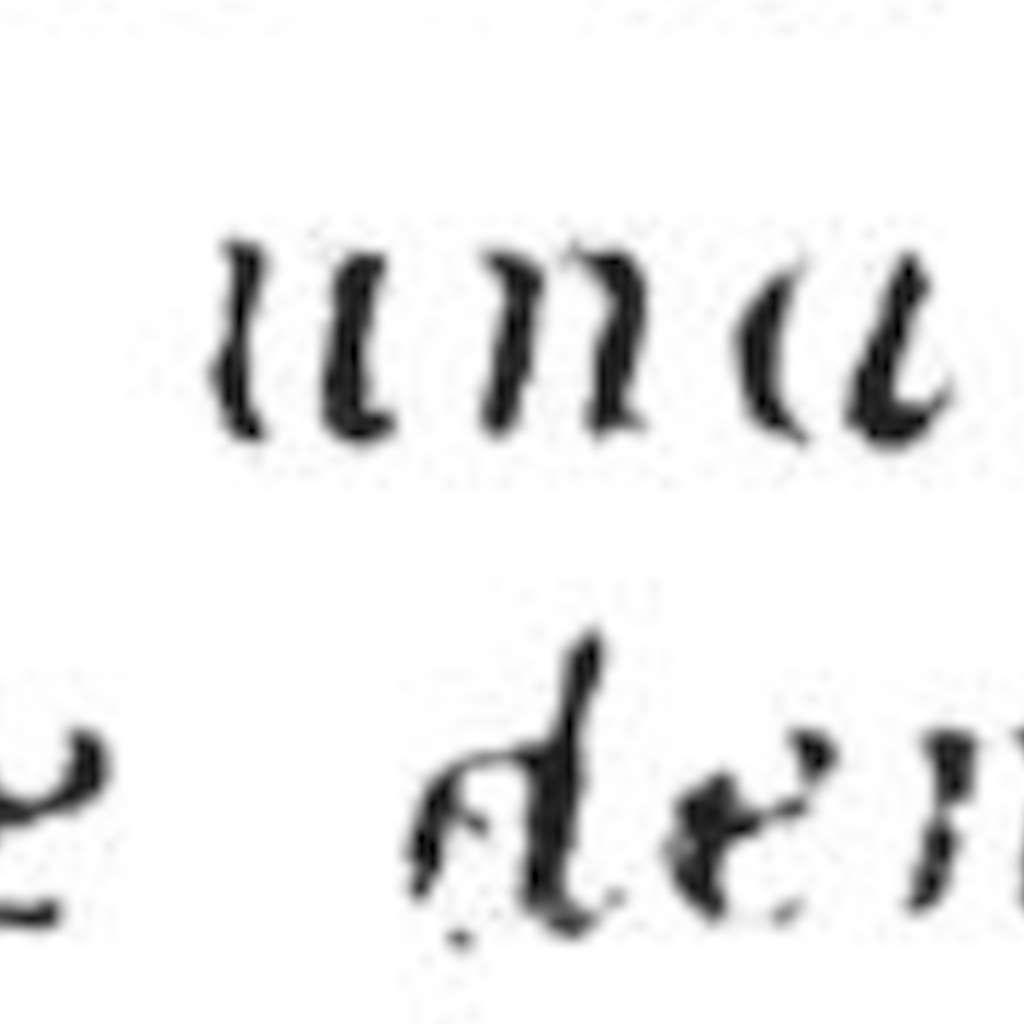 una
e den